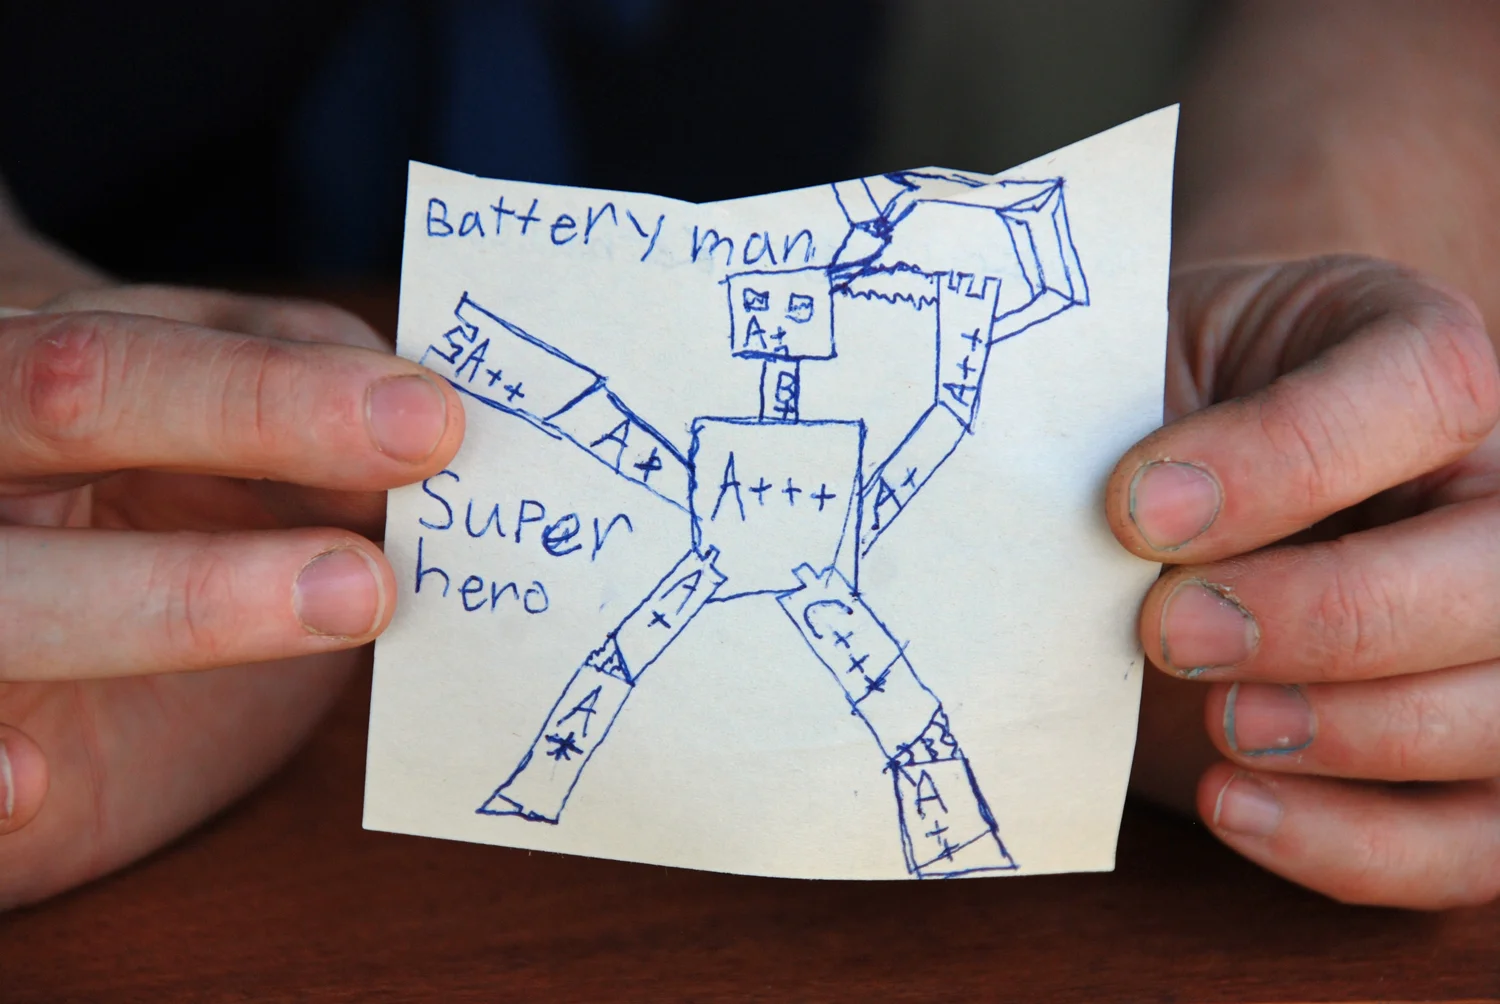 Battery man
A+
B+
SA++
A++
A+
A+
A+++
Super
hero
A+
C+++
A*
A++